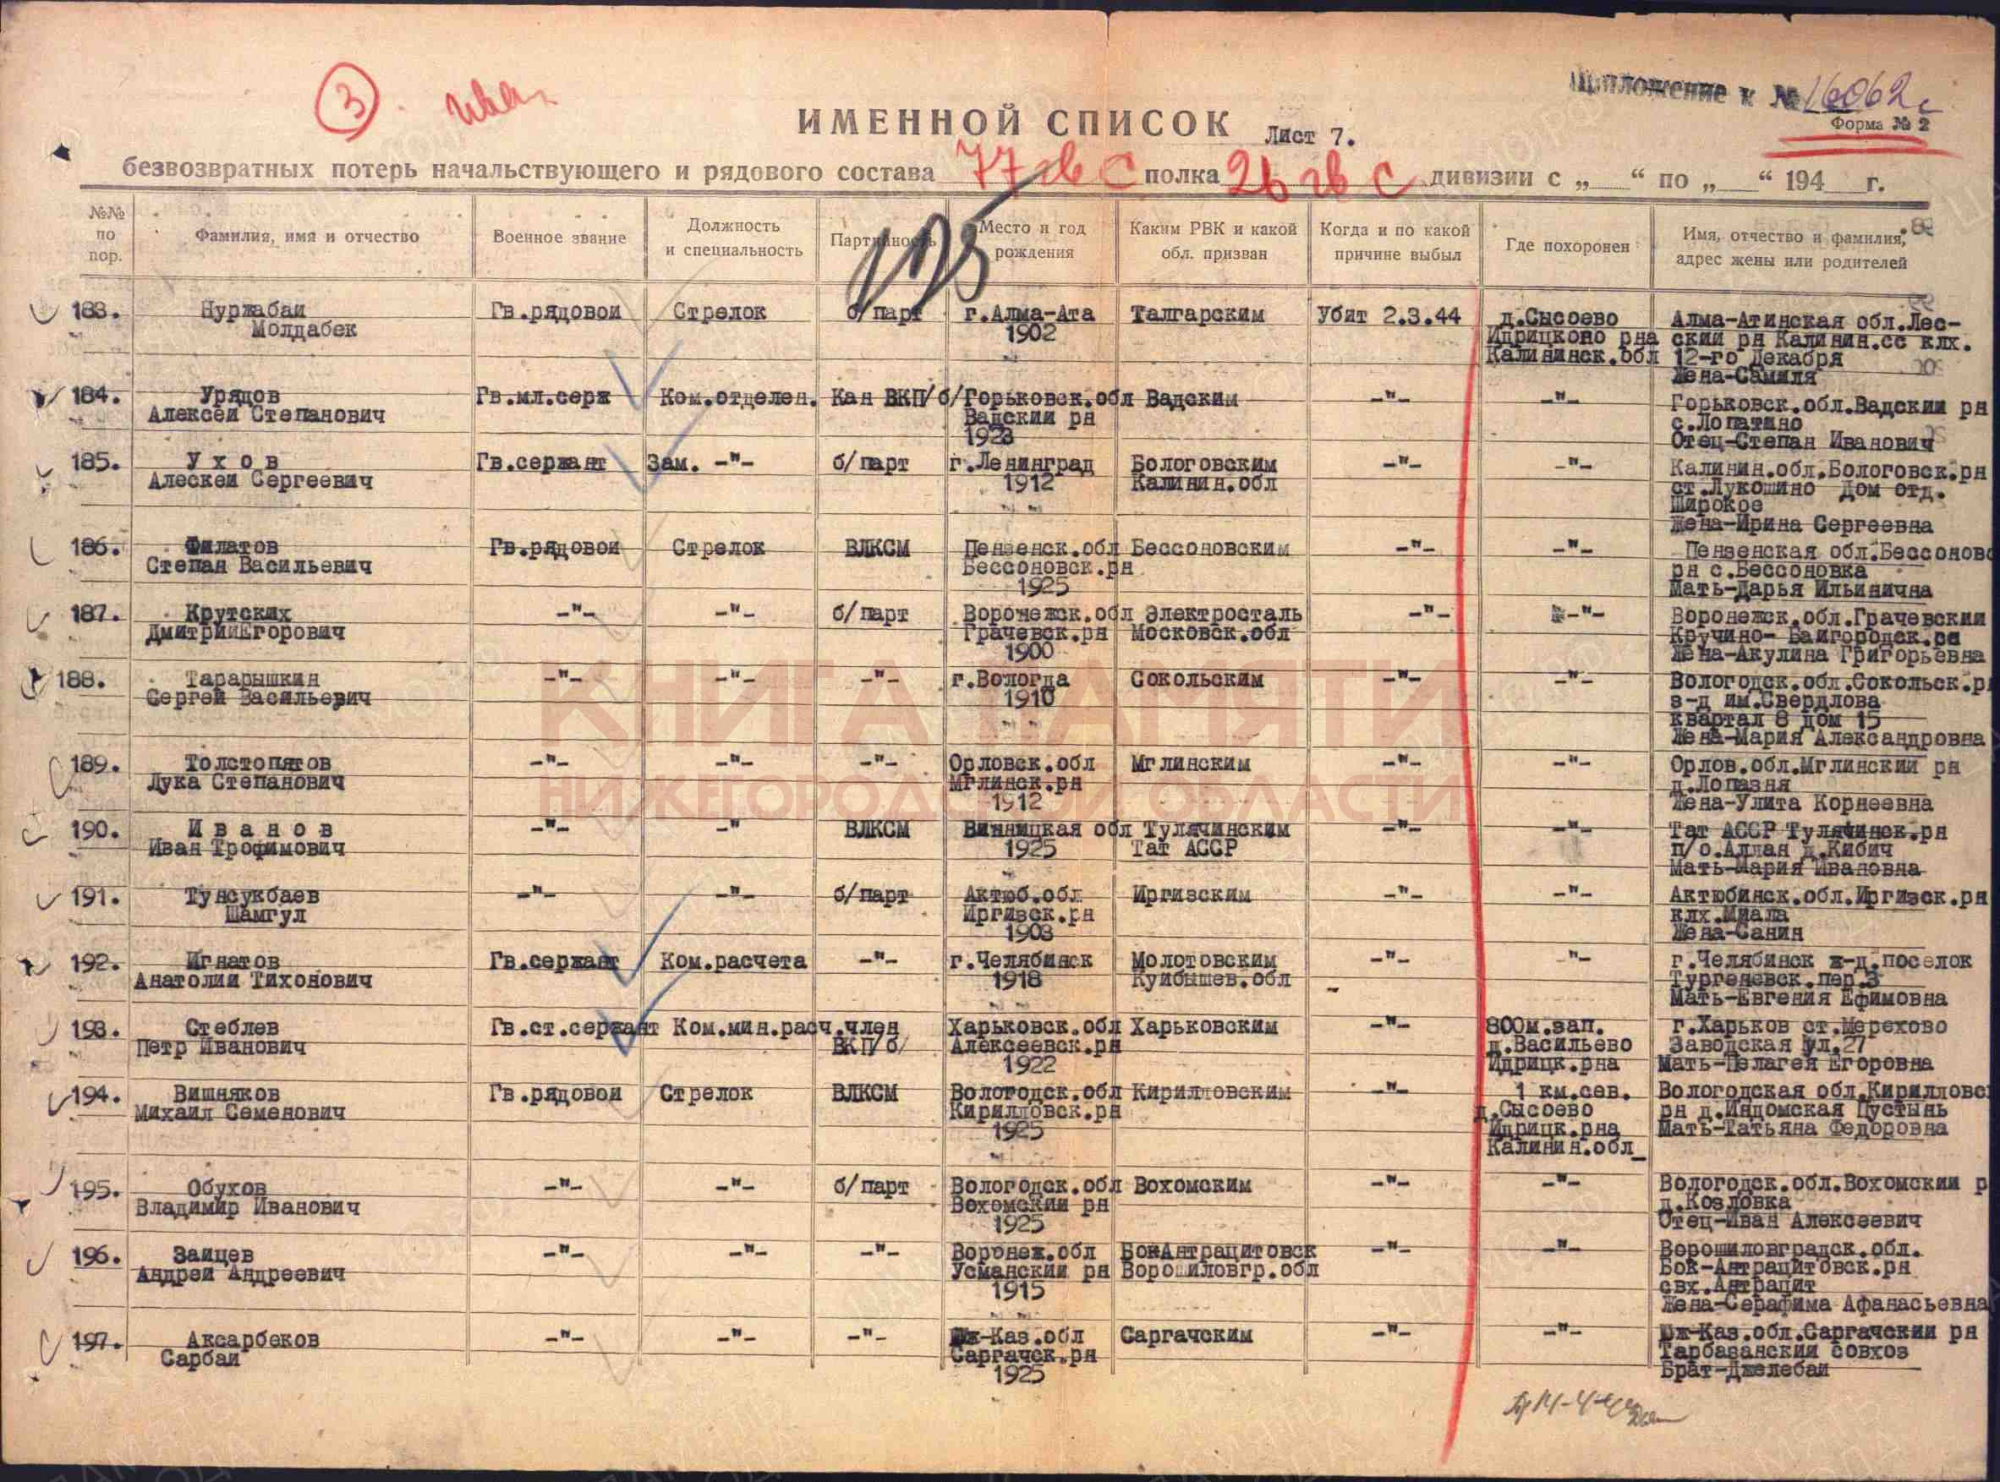 3
Приложение к № 16062с
Форма № 2
ИМЕННОЙ СПИСОК Лист 7.
безвозвратных потерь начальствующего и рядового состава 77 гв С полка 26 гв С дивизии с „ “ по „ “ 194 г.
№№ по пор. Фамилия, имя и отчество Военное звание Должность и специальность Партийность Место и год рождения Каким РВК и какой обл. призван Когда и по какой причине выбыл Где похоронен Имя, отчество и фамилия, адрес жены или родителей
183. Нуржабаи Гв.рядовои Стрелок б/парт г.Алма-Ата Талгарским Убит 2.3.44 д.Сысоево Алма-Атинская обл.Лес-
Молдабек 1902 Идрицково рна ский рн Калинин.сс клх.
Калининск.обл 12-го Декабря
Жена-Самиля
184. Урядов Гв.мл.серж Ком.отделен. Кан ВКП/б/ Горьковск.обл Вадским -"- -"- Горьковск.обл.Вадский рн
Алексеи Степанович Вадский рн с.Лопатино
1923 Отец-Степан Иванович
185. У х о в Гв.сержант Зам. -"- б/парт г.Ленинград Бологовским -"- -"- Калинин.обл.Бологовск.рн
Алескеи Сергеевич 1912 Калинин.обл ст.Лукошино Дом отд.
Широкое
Жена-Ирина Сергеевна
186. Филатов Гв.рядовои Стрелок ВЛКСМ Пензенск.обл Бессоновским -"- -"- Пензенская обл.Бессоновс
Степан Васильевич Бессоновск.рн рн с.Бессоновка
1925 Мать-Дарья Ильинична
187. Крутских -"- -"- б/парт Воронежск.обл Электросталь -"- -"- Воронежск.обл.Грачевский
ДмитрииЕгорович Грачевск.рн Московск.обл Кручино- Баигородск.сс
1900 Жена-Акулина Григорьевна
188. Тарарышкин -"- -"- -"- г.Вологда Сокольским -"- -"- Вологодск.обл.Сокольск.рн
Сергей Васильевич 1910 з-д им.Свердлова
квартал 8 дом 15
Жена-Мария Александровна
189. Толстопятов -"- -"- -"- Орловск.обл Мглинским -"- -"- Орлов.обл.Мглинский рн
Лука Степанович Мглинск.рн д.Лопазня
1912 Жена-Улита Корнеевна
190. И в а н о в -"- -" ВЛКСМ Винницкая обл Тулячинским -"- -"- Тат АССР Тулячинск.рн
Иван Трофимович 1925 Тат АССР п/о.Аллан д.Кибич
Мать-Мария Ивановна
191. Тунсукбаев -"- -"- б/парт Актюб.обл Иргизским -"- -"- Актюбинск.обл.Иргизск.рн
Шамгул Иргизск.рн клх.Миала
1903 Жена-Сания
192. Игнатов Гв.сержант Ком.расчета -"- г.Челябинск Молотовским -"- "- г.Челябинск ж-д.поселок
Анатолии Тихонович 1918 Куибышев.обл Тургеневск.пер.3
Мать-Евгения Ефимовна
193. Стеблев Гв.ст.сержант Ком.мин.расч.член Харьковск.обл Харьковским -"- 800м.зап. г.Харьков ст.Мерехово
Петр Иванович ВКП/б/ Алексеевск.рн д.Васильево Заводская ул.27
1922 Идрицк.рна Мать-Пелагея Егоровна
194. Вишняков Гв.рядовои Стрелок ВЛКСМ Вологодск.обл Кирилловским -"- 1 км.сев. Вологодская обл.Кирилловс
Михаил Семенович Кирилловск.рн д.Сысоево рн д.Индомская Пустынь
1925 Идрицк.рна Мать-Татьяна Федоровна
Калинин.обл_
195. Обухов -"- -"- б/парт Вологодск.обл Вохомским -"- -"- Вологодск.обл.Вохомский р
Владимир Иванович Вохомский рн д.Козловка
1925 Отец-Иван Алексеевич
196. Заицев -"- -"- -"- Воронеж.обл БокАнтрацитовск -"- -"- Ворошиловградск.обл.
Андреи Андреевич Усманский рн Ворошиловгр.обл Бок-Антрацитовск.рн
1915 свх.Антрацит
Жена-Серафима Афанасьевна
197. Аксарбеков -"- -"- -"- Юж-Каз.обл Саргачским -"- -"- Юж-Каз.обл.Саргачский рн
Сарбаи Саргачск.рн Тарбазанский совхоз
1925 Брат-Джелебаи
КНИГА ПАМЯТИ
НИЖЕГОРОДСКОЙ ОБЛАСТИ